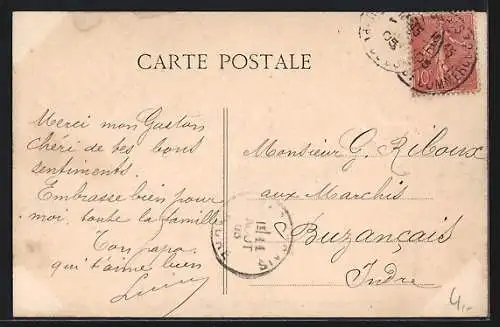 CARTE POSTALE
Merci mon Gaston
chéri de tes bons
sentiments.
Embrasse bien pour
moi, toute la famille
Ton papa,
qui t'aime bien
Monsieur G. Riboux
aux Marchis
Buzançais
Indre
AOUT
05
10
4,-